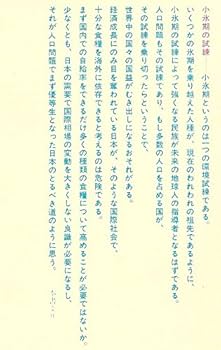 小氷期の試練　　小氷期というのは一つの環境試練である。
いくつかの氷期を乗り越えた人種が、現在のわれわれの祖先であるように、
小氷期の試練によって強くなる民族が未来の地球人の指導者となるはずである。
人口問題もその試練であり、もし多数の人口を占める国が、
その試練を乗り切ったらということで、
世界中の国々の国益がむき出しになるおそれがある。
経済成長にのみ目を奪われている日本が、そのような国際社会で、
十分な食糧を海外に依存できると考えるのは危険である。
まず国内での自給率をできるだけ多くの種類の食糧について高めることが必要ではないか。
少なくとも、日本の需要で国際相場の変動を大きくしない良識が必要になるし、
それが人口問題でまず優等生となった日本のとるべき道のように思う。